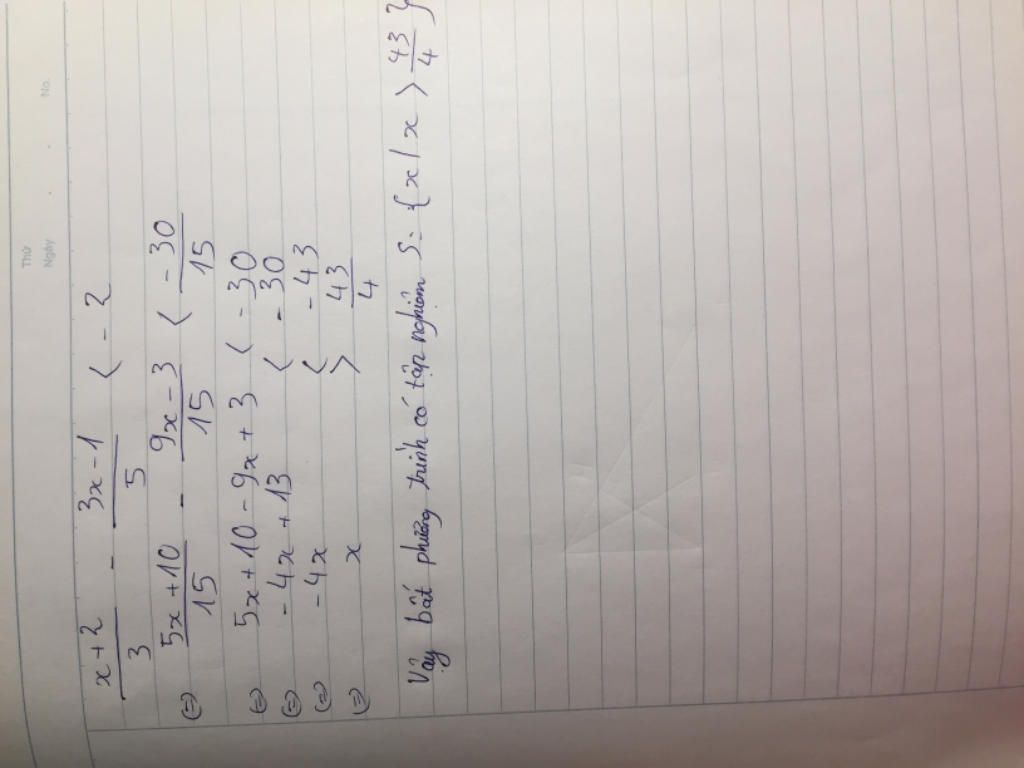 Thứ
Ngày . . No.
x+2/3 - 3x-1/5 < -2
⇔ 5x+10/15 - 9x-3/15 < -30/15
⇔ 5x+10-9x+3 < -30
⇔ -4x+13 < -30
⇔ -4x < -43
⇔ x > 43/4
Vậy bất phương trình có tập nghiệm S= {x/x > 43/4}